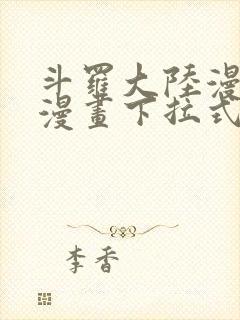 斗羅大陸漫
漫畫下拉式
李香